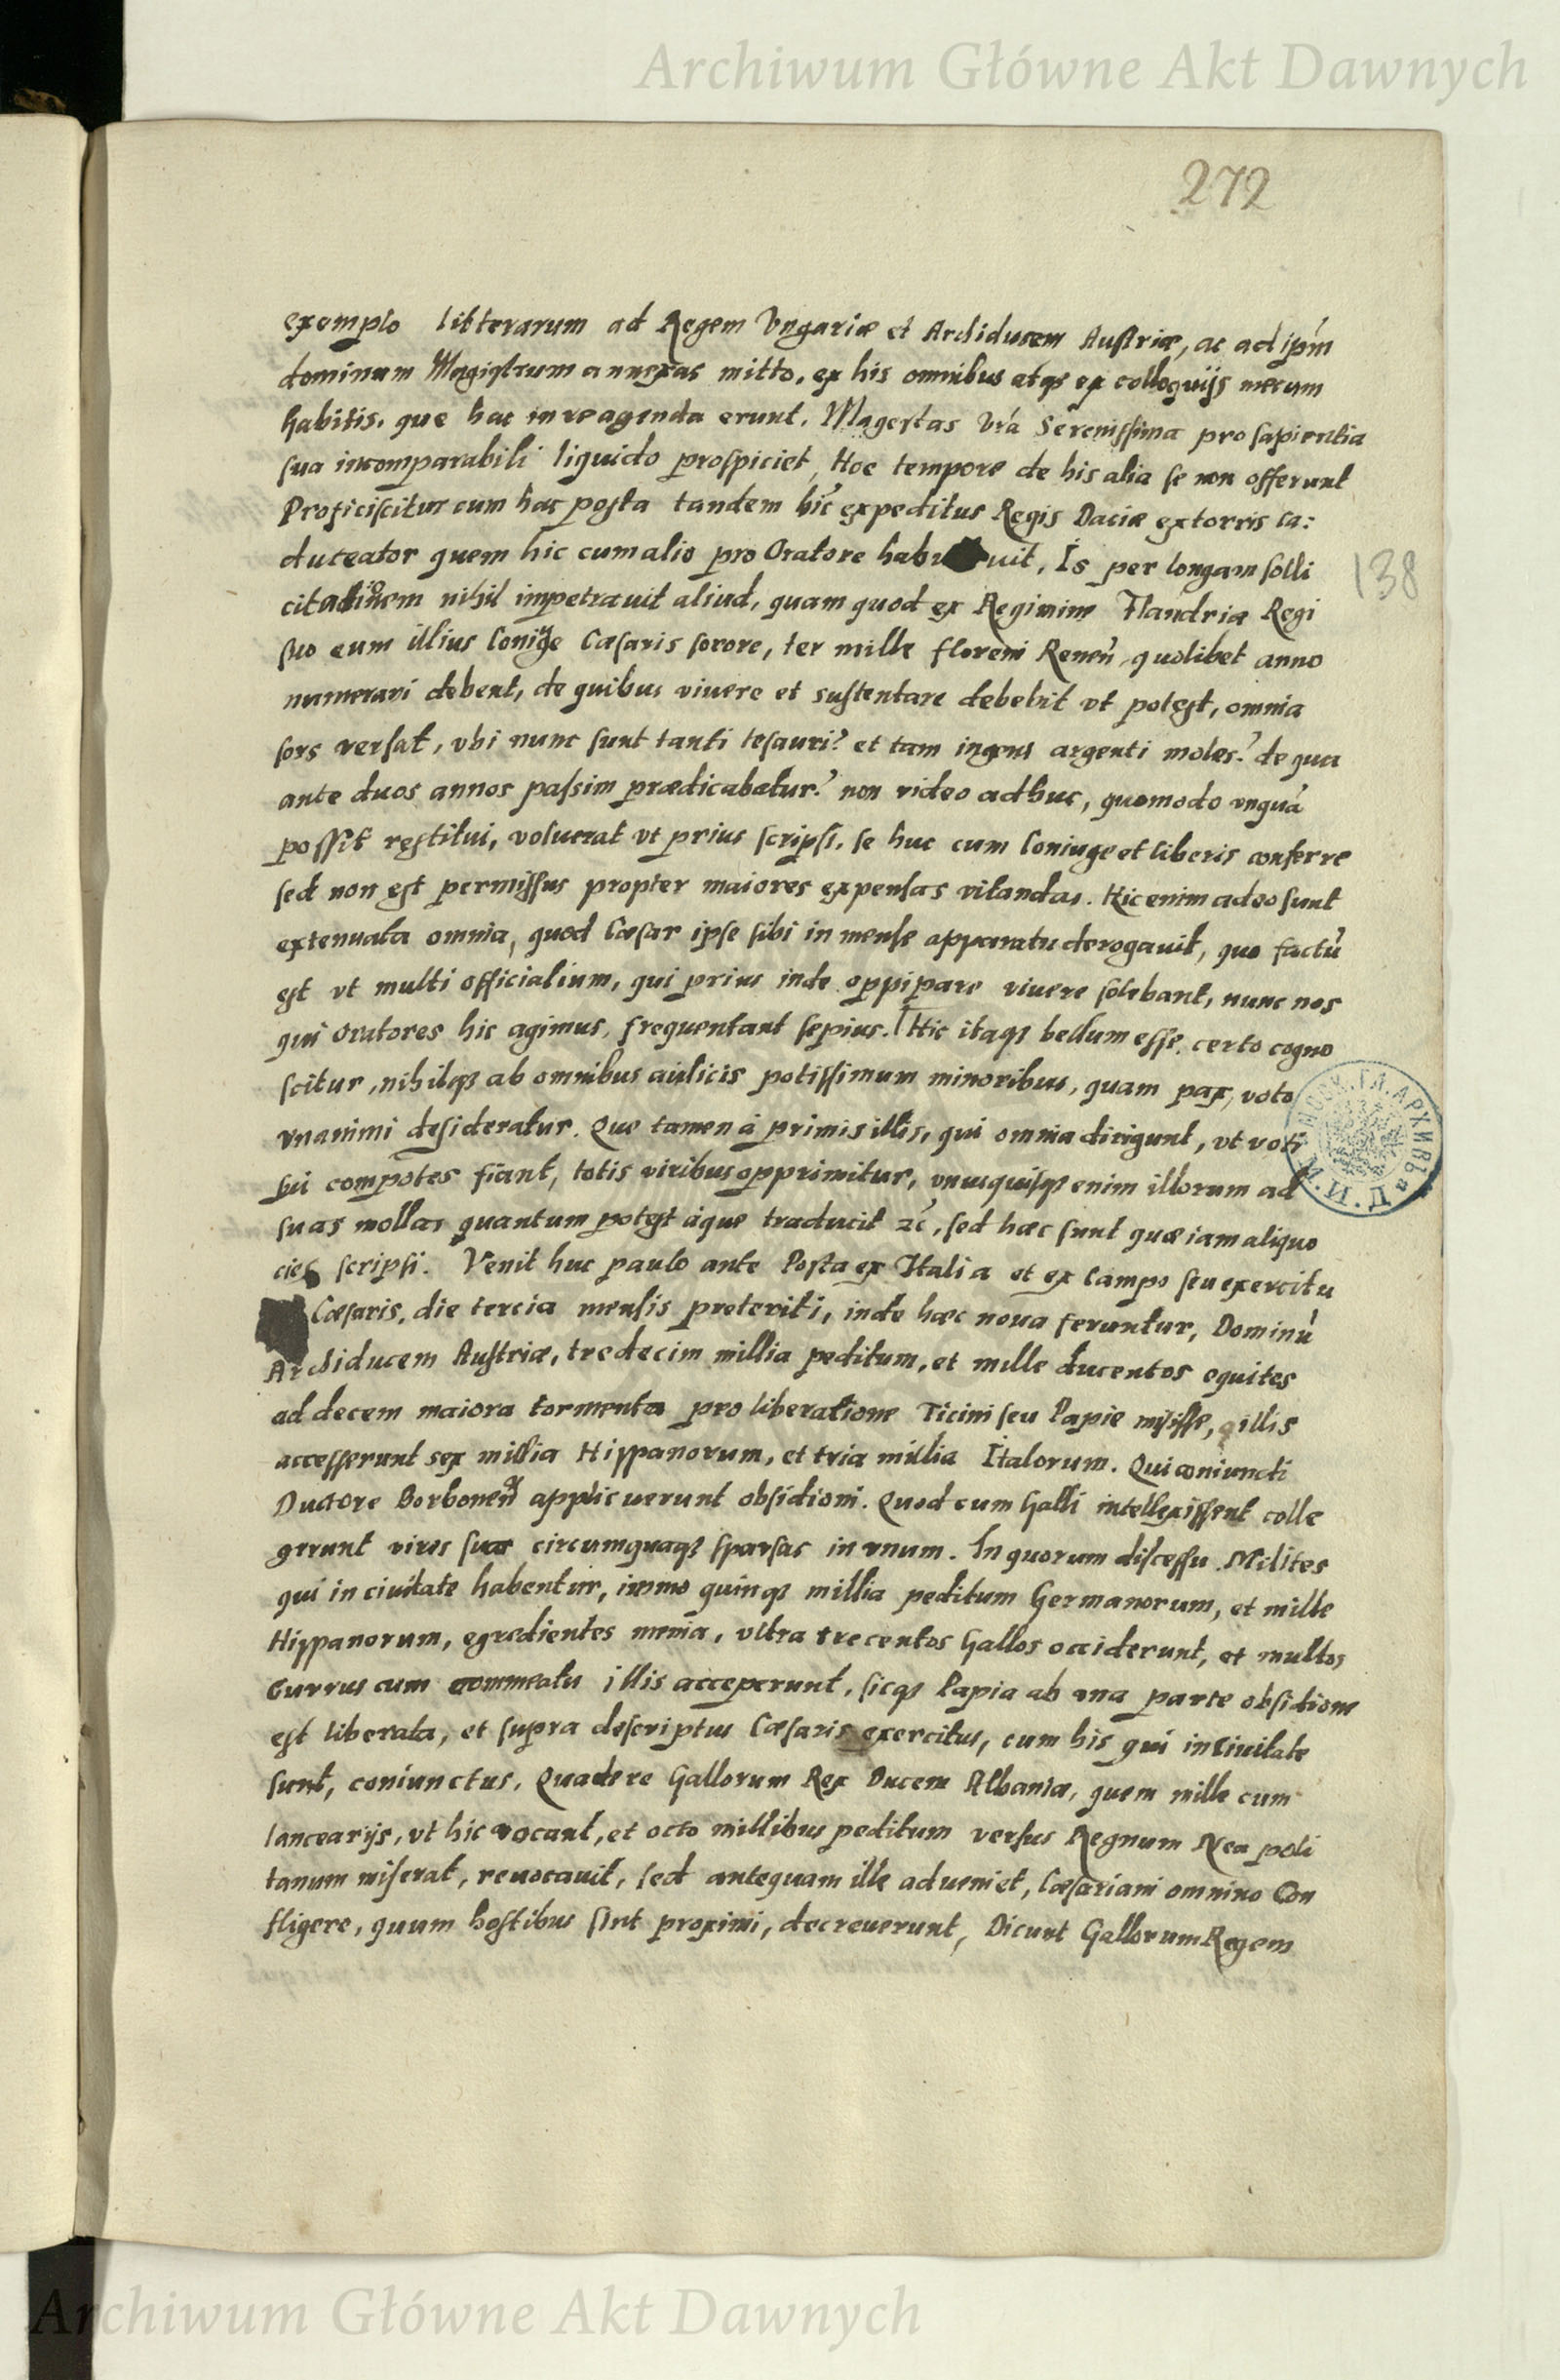 Archiwum Główne Akt Dawnych
272
exemplo litterarum ad Regem Vngariæ et Archiducem Austriæ, ac ad ip̃m
dominum Magistrum annexas mitto, ex his omnibus atqȝ ex colloquijs mecum
habitis, que hac in re agenda erunt. Magestas Vrá Serenissima pro sapientia
sua incomparabili liquido prospiciet, Hoc tempore de his alia se non offerunt
Proficiscitur cum hac posta tandem hic expeditus Regis Daciæ extorris ca:
duceator quem hic cum alio pro Oratore habuit, Is per longam solli
138
citationem nihil impetrauit aliud, quam quod ex Regimine Flandriæ Regi
suo cum illius Coniuge Cæsaris sorore, ter mille floreni Renen̄ quolibet anno
numerari debent, de quibus viuere et sustentare debebit vt potest, omnia
sors versat, vbi nunc sunt tanti tesauri? et tam ingens argenti moles? de qua
ante duos annos passim prædicabatur? non video adhuc, quomodo vnquā
possit restitui, voluerat vt prius scripsi, se huc cum Coniuge et liberis conferre
sed non est permissus propter maiores expensas vitandas. Hic enim adeo sunt
extenuata omnia, quod Cæsar ipse sibi in mense apparatu derogauit, quo factū
est vt multi officialium, qui prius inde oppipare viuere solebant, nunc nos
qui Oratores hic agimus, frequentant sepius. Hic itaqȝ bellum esse, certo cogno
scitur, nihilqȝ ab omnibus aulicis potissimum minoribus, quam pax, voto
vnanimi desideratur. Que tamen à primis illis, qui omnia dirigunt, vt voti
sui compotes fiant, totis viribus opprimitur, vnusquisqȝ enim illorum ad
suas mollas quantum potest aque traducit ꝛc̃, sed hæc sunt quæ iam aliquo
cies scripsi. Venit huc paulo ante Posta ex Italia et ex Campo seu exercitu
Cæsaris, die tercia mensis preteriti, inde hæc noua feruntur, Dominū
Archiducem Austriæ, tredecim millia peditum, et mille ducentos equites
ad decem maiora tormenta pro liberatione Ticini seu Papie misisse, illis
accesserunt sex millia Hispanorum, et tria millia Italorum. Qui coniuncti
Ductore Borbonen̄ applicuerunt obsidioni. Quod cum Galli intellexissent colle
gerunt vires suas circumquaqȝ sparsas in vnum. In quorum discessu Milites
qui in ciuitate habentur, immo quinqȝ millia peditum Germanorum, et mille
Hispanorum, egredientes menia, vltra trecentos Gallos occiderunt, et multos
Currus cum commeatu illis acceperunt, sicqȝ Papia ab vna parte obsidione
est liberata, et supra descriptus Cæsaris exercitus, cum his qui in Ciuitate
sunt, coniunctus. Qua de re Gallorum Rex Ducem Albaniæ, quem mille cum
lancearijs, vt hic vocant, et octo millibus peditum versus Regnum Neapoli
tanum miserat, reuocauit, sed antequam ille adueniet, Cæsariani omnino Con
fligere, quum hostibus sint proximi, decreuerunt, Dicunt Gallorum Regem
Archiwum Główne Akt Dawnych